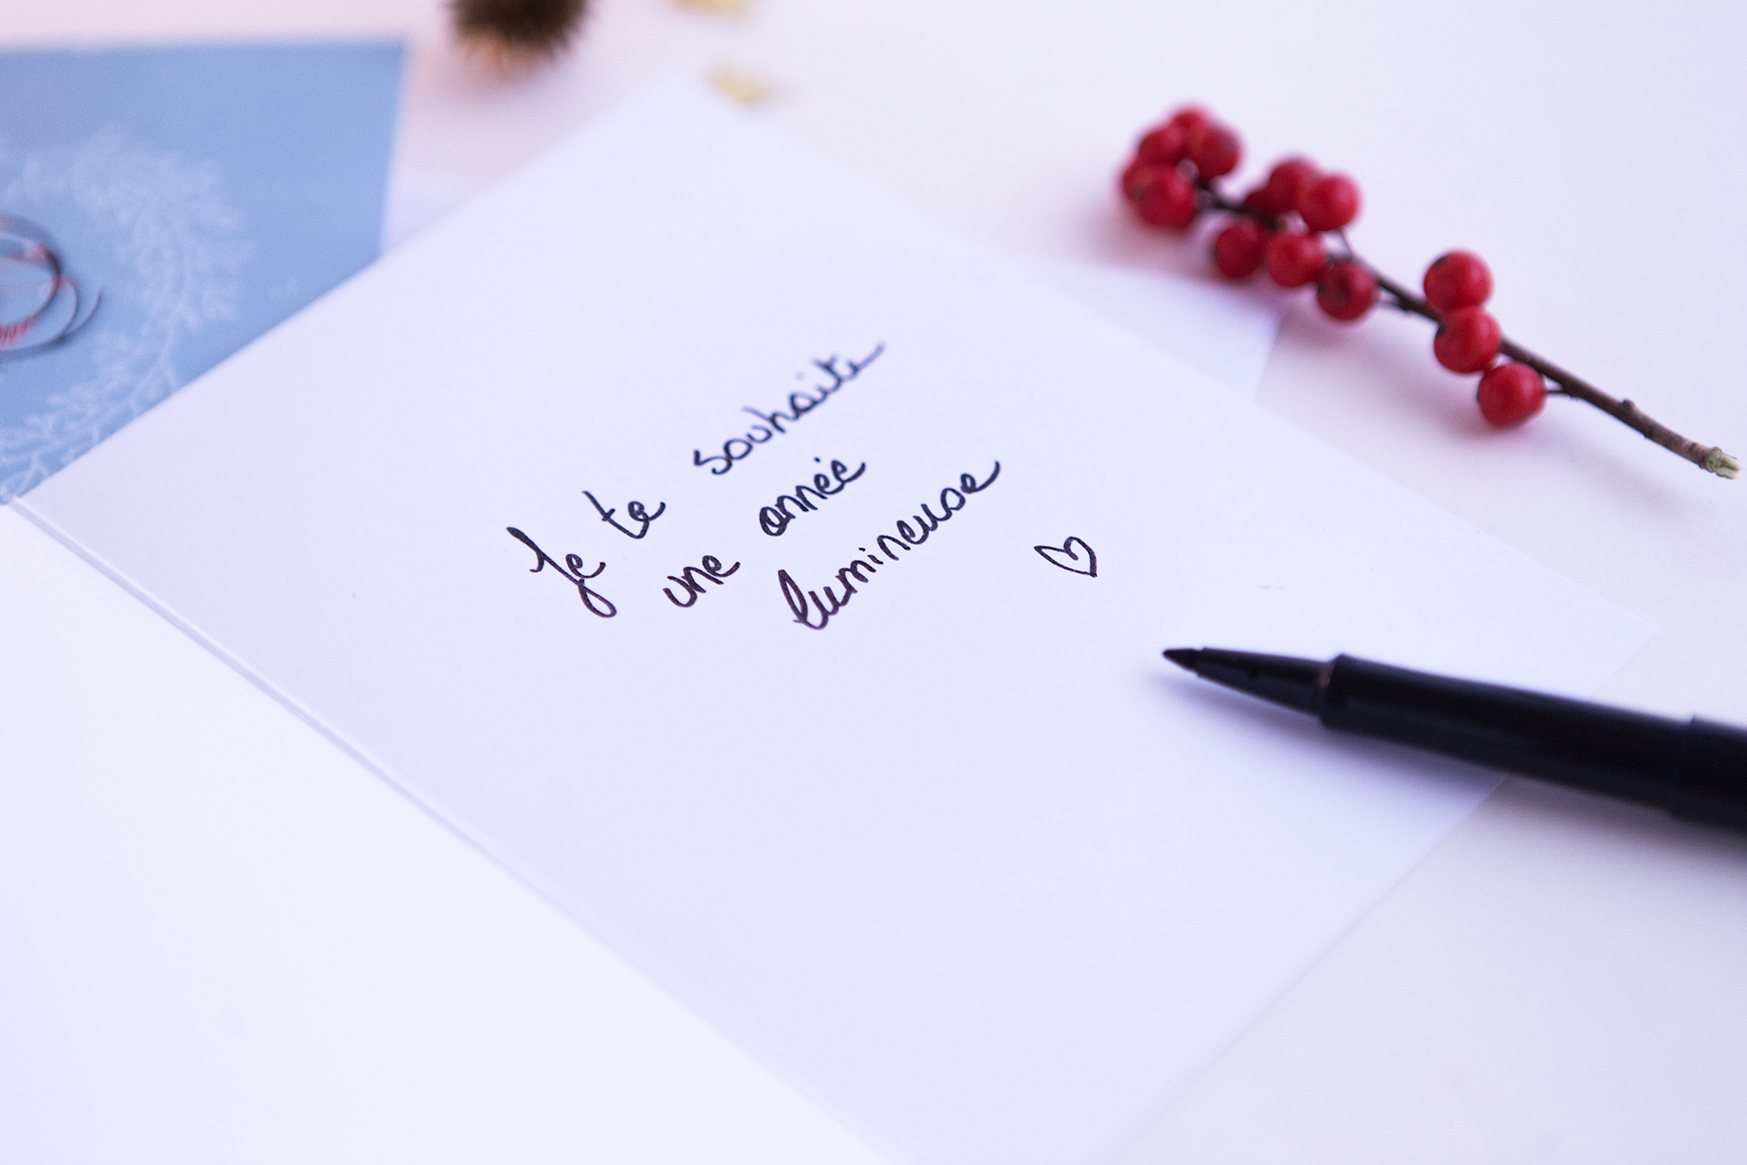 Je te souhaite
une année
lumineuse ♡